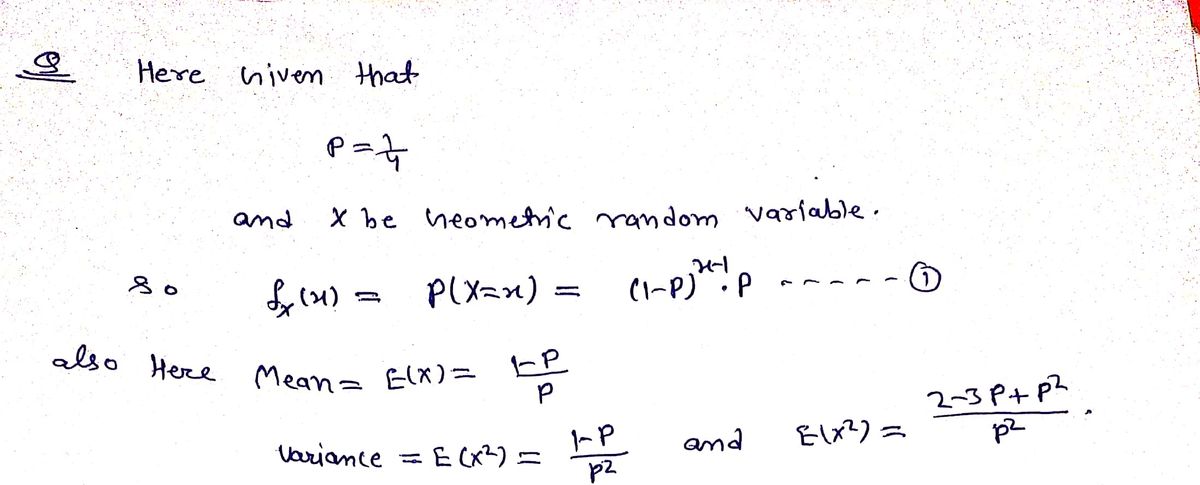 Q Here Given that
P = 1/4
and X be Geometric random variable.
so fₓ(x) = P(X=x) = (1-P)^(x-1) . P ----- ①
also Here Mean = E(X) = (1-P)/P
Variance = E(X²) = (1-P)/P² and E(X²) = (2-3P+P²)/P² .